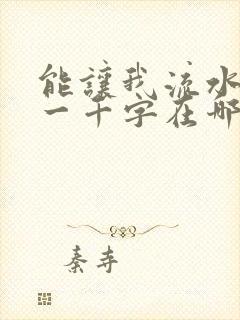 能讓我流水
一千字在哪
秦寺